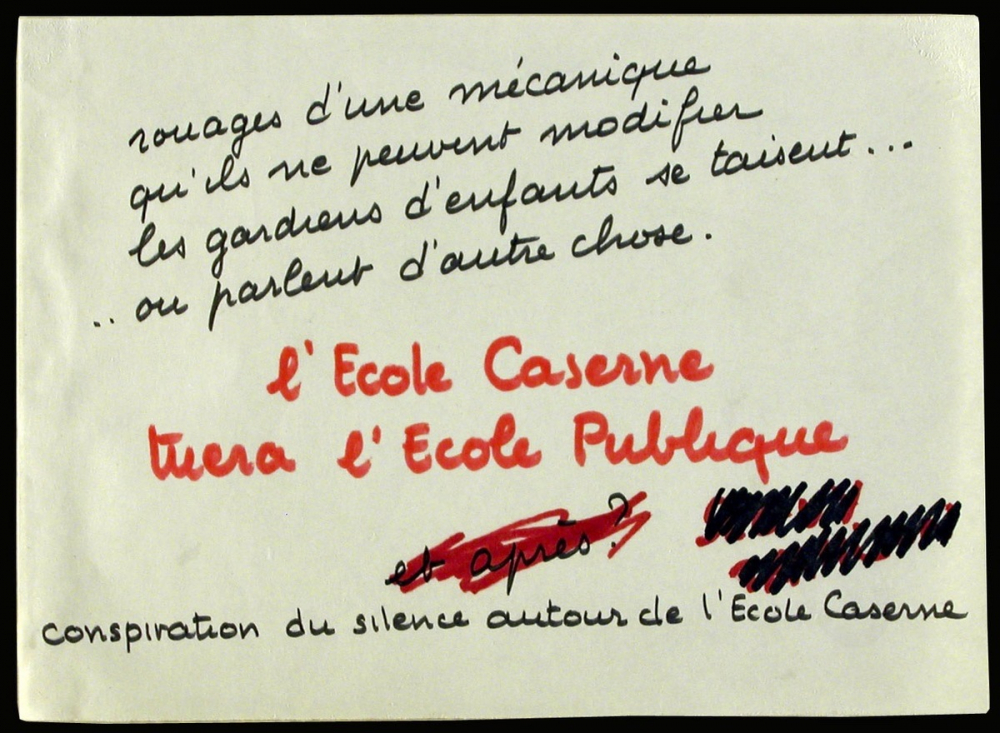 rouages d'une mécanique
qu'ils ne peuvent modifier
les gardiens d'enfants se taisent...
.. ou parlent d'autre chose.
l'Ecole Caserne
tuera l'Ecole Publique
et après ?
conspiration du silence autour de l'Ecole Caserne